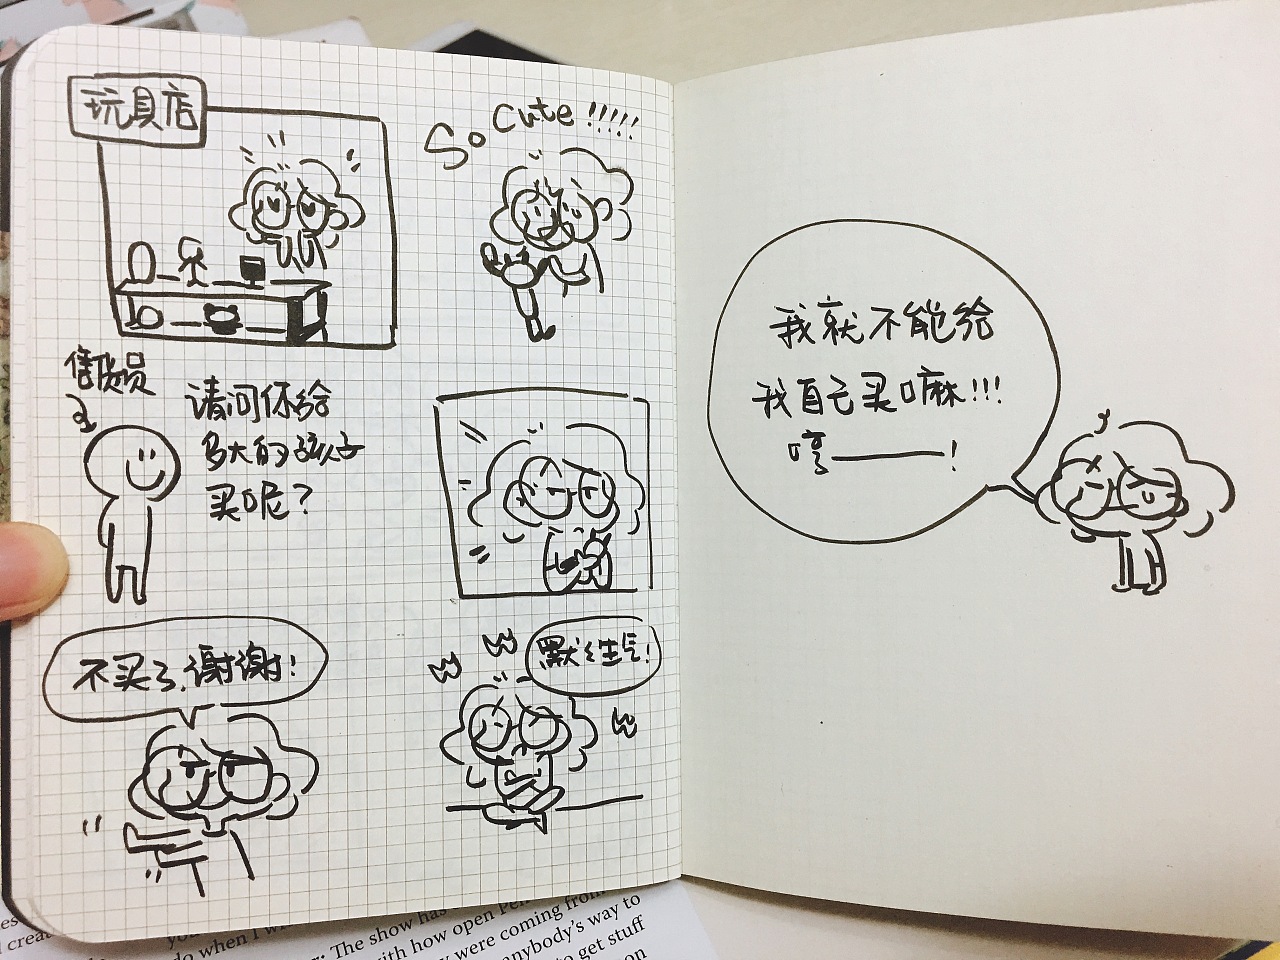 玩具店
So cute !!!!!
售货员
请问你给
多大的孩子
买呢？
不买了,谢谢!
默默生气!
我就不能给
我自己买嘛!!!
哼——!
: The show has
with how open
were coming from
anybody's way to
to get stuff
do when I